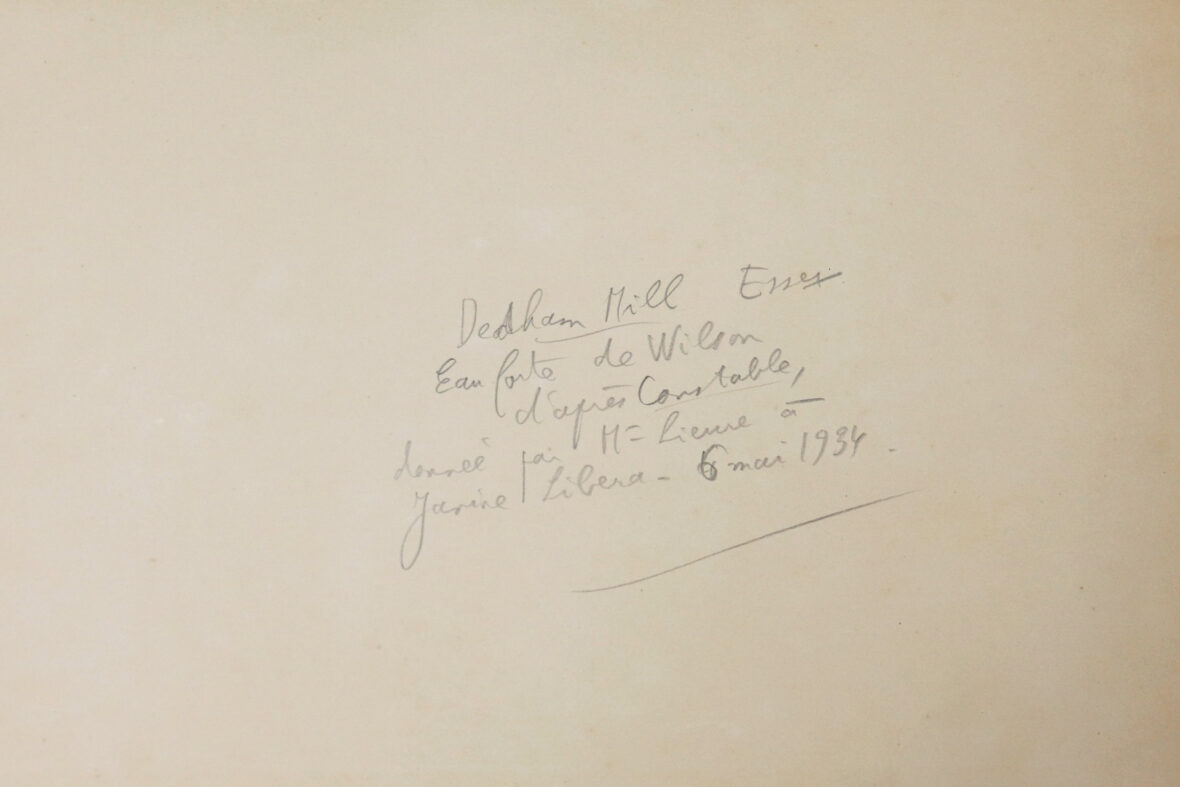 Dedham Mill Essex
Eau forte de Wilson
d'après Constable,
donnée par M= Lieure à
Janine Libera - 6 mai 1934.